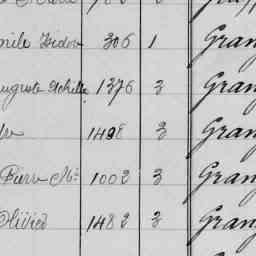 Isidore 306 1 Gran
Auguste Achille 1376 3 Gran
1498 3 Gran
Pierre Me 1002 3 Gran
Olivier 1482 3 Gran